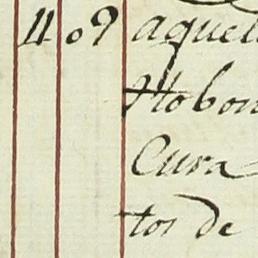 409 aquel
Hobon
Cura
tos de